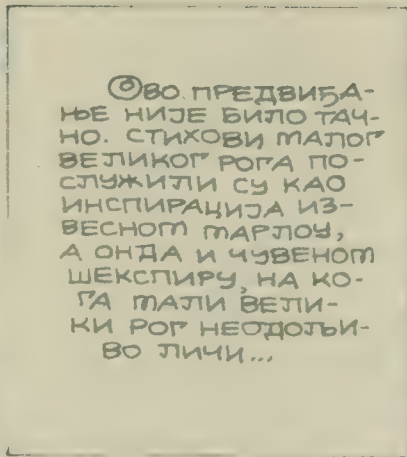 ОВО ПРЕДВИЂА-
ЊЕ НИЈЕ БИЛО ТАЧ-
НО. СТИХОВИ МАЛОГ
ВЕЛИКОГ РОГА ПО-
СЛУЖИЛИ СУ КАО
ИНСПИРАЦИЈА ИЗ-
ВЕСНОМ МАРЛОУ,
А ОНДА И ЧУВЕНОМ
ШЕКСПИРУ, НА КО-
ГА МАЛИ ВЕЛИ-
КИ РОГ НЕОДОЉИ-
ВО ЛИЧИ...